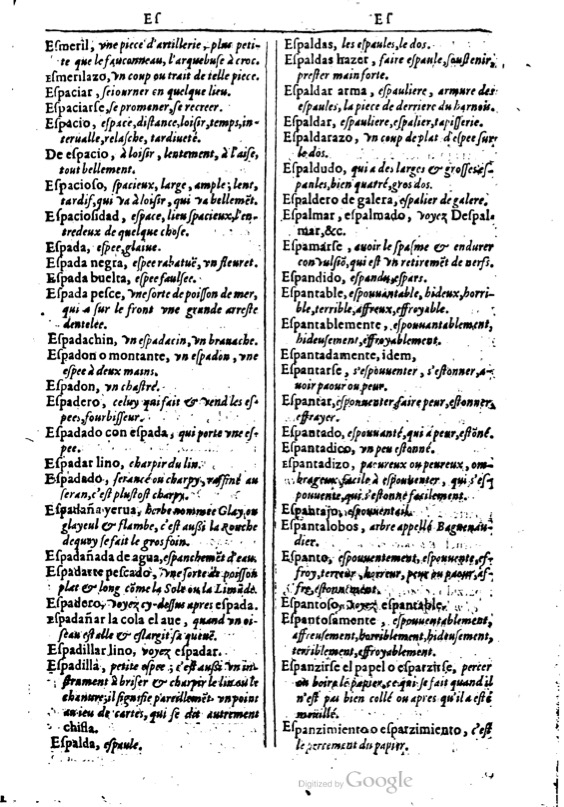 Eſ
Eſmeril, vne piece d'artillerie, plus peti-
te que le fauconneau, l'arquebuſe à croc.
Eſmerilazo, vn coup ou trait de telle piece.
Eſpaciar, ſeiourner en quelque lieu.
Eſpaciarſe, ſe promener, ſe recreer.
Eſpacio, eſpace, diſtance, loiſir, temps, in-
terualle, relaſche, tardiueté.
De eſpacio, à loiſir, lentement, à l'aiſe,
tout bellement.
Eſpacioſo, ſpacieux, large, ample; lent,
tardif, qui va à loiſir, qui va bellemẽt.
Eſpacioſidad, eſpace, lieu ſpacieux, l'en-
tredeux de quelque choſe.
Eſpada, eſpee, glaiue.
Eſpada negra, eſpee rabatuë, vn fleuret.
Eſpada buelta, eſpee faulſee.
Eſpada peſce, vne ſorte de poiſſon de mer,
qui a ſur le front vne grande arreſte
dentelee.
Eſpadachin, vn eſpadacin, vn brauache.
Eſpadon o montante, vn eſpadon, vne
eſpee à deux mains.
Eſpadon, vn chaſtré.
Eſpadero, celuy qui fait & vend les eſ-
pees, fourbiſſeur.
Eſpadado con eſpada, qui porte vne eſ-
pee.
Eſpadar lino, charpir du lin.
Eſpadado, ſerancé ou charpy, raffiné au
ſeran, c'eſt pluſtoſt charpy.
Eſpadaña yerua, herbe nommee Glay, ou
glayeul & flambe, c'eſt auſſi la Rouche
dequoy ſe fait le gros foin.
Eſpadañada de agua, eſpanchemẽt d'eau.
Eſpadarte peſcado, vne ſorte de poiſſon
plat & long cõme la Sole ou la Limãde.
Eſpadero, voyez cy-deſſus apres eſpada.
Eſpadañar la cola el aue, quand vn oi-
ſeau eſtalle & eſlargit ſa queuë.
Eſpadillar lino, voyez eſpadar.
Eſpadilla, petite eſpee; c'eſt auſſi vn in-
ſtrument à briſer & charpir le lin ou le
chanure; il ſignifie pareillemẽt vn point
au ieu de cartes, qui ſe dit autrement
chiſla.
Eſpalda, eſpaule.
Eſ
Eſpaldas, les eſpaules, le dos.
Eſpaldas hazer, faire eſpaule, ſouſtenir,
preſter main forte.
Eſpaldar arma, eſpauliere, armure des
eſpaules, la piece de derriere du harnois.
Eſpaldar, eſpauliere, eſpalier, tapiſſerie.
Eſpaldarazo, vn coup de plat d'eſpee ſur
le dos.
Eſpaldudo, qui a des larges & groſſes eſ-
paules, bien quatré, gros dos.
Eſpaldero de galera, eſpalier de galere.
Eſpalmar, eſpalmado, voyez Deſpal-
mar, &c.
Eſpamarſe, auoir le ſpaſme & endurer
conuulſiõ, qui eſt vn retiremẽt de nerfs.
Eſpandido, eſpandu, eſpars.
Eſpantable, eſpouuantable, hideux, horri-
ble, terrible, affreux, effroyable.
Eſpantablemente, eſpouuantablement,
hideuſement, effroyablement.
Eſpantadamente, idem,
Eſpantarſe, s'eſpouuenter, s'eſtonner, a-
uoir paour ou peur.
Eſpantar, eſpouuenter, faire peur, eſtonner,
effrayer.
Eſpantado, eſpouuanté, qui a peur, eſtõné.
Eſpantadico, vn peu eſtonné.
Eſpantadizo, paoureux ou peureux, om-
brageux, facile à eſpouuenter, qui s'eſ-
pouuente, qui s'eſtonne facilement.
Eſpantajo, eſpouuentail.
Eſpantalobos, arbre appellé Baguenau-
dier.
Eſpanto, eſpouuentement, eſpouuente, eſ-
froy, terreur, horreur, peur ou paour, aſ-
fre, eſtonnement.
Eſpantoſo, voyez eſpantable.
Eſpantoſamente, eſpouuentablement,
affreuſement, horriblement, hideuſement,
terriblement, effroyablement.
Eſpanzirſe el papel o eſparzirſe, percer
ou boire le papier, ce qui ſe fait quand il
n'eſt pas bien collé ou apres qu'il a eſté
moüillé.
Eſpanzimiento o eſparzimiento, c'eſt
le percement du papier.
Digitized by Google